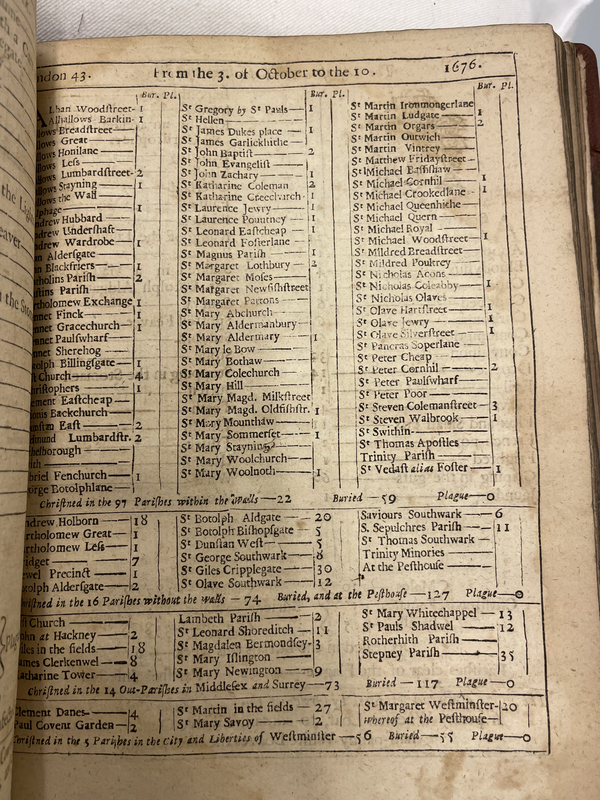 ndon 43. From the 3. of October to the 10. 1676.
Bur. Pl. Bur. Pl. Bur. Pl.
Lban Woodſtreet- 1
Alhallows Barkin- 1
llows Breadſtreet
llows Great
llows Honilane
llows Leſs
llows Lumbardſtreet- 2
llows Stayning 1
llows the Wall
lphage 1
ndrew Hubbard
ndrew Underſhaft
ndrew Wardrobe 1
nn Alderſgate
nn Blackfriers 1
rtholins Pariſh 2
uſtins Pariſh
rtholomew Exchange 1
nnet Finck 1
nnet Gracechurch 1
nnet Paulſwharf
nnet Sherehog
otolph Billingſgate 1
ſt Church 4
riſtophers 1
ement Eaſtcheap
onis Backchurch
unſtan Eaſt 2
dmund Lumbardſtr. 2
helborough
lith
briel Fenchurch 1
eorge Botolphlane
St Gregory by St Pauls 1
St Hellen
St James Dukes place 1
St James Garlickhithe
St John Baptiſt 2
St John Evangeliſt
St John Zachary 1
St Katharine Coleman 2
St Katharine Creechurch 1
St Laurence Jewry 1
St Laurence Pountney 1
St Leonard Eaſtcheap 1
St Leonard Foſterlane
St Magnus Pariſh 1
St Margaret Lothbury 2
St Margaret Moſes
St Margaret Newfiſhſtreet
St Margaret Pattons
St Mary Abchurch
St Mary Aldermanbury
St Mary Aldermary 1
St Mary le Bow
St Mary Bothaw
St Mary Colechurch
St Mary Hill
St Mary Magd. Milkſtreet
St Mary Magd. Oldfiſhſtr. 1
St Mary Mounthaw
St Mary Sommerſet 1
St Mary Stayning
St Mary Woolchurch
St Mary Woolnoth 1
St Martin Ironmongerlane
St Martin Ludgate 1
St Martin Orgars 2
St Martin Outwich
St Martin Vintrey
St Matthew Fridayſtreet
St Michael Baſſiſhaw
St Michael Cornhil 1
St Michael Crookedlane 1
St Michael Queenhithe
St Michael Quern
St Michael Royal
St Michael Woodſtreet 1
St Mildred Breadſtreet
St Mildred Poultrey
St Nicholas Acons
St Nicholas Coleabby 1
St Nicholas Olaves
St Olave Hartſtreet 1
St Olave Jewry 1
St Olave Silverſtreet 1
St Pancras Soperlane
St Peter Cheap
St Peter Cornhil 2
St Peter Paulſwharf
St Peter Poor
St Steven Colemanſtreet 3
St Steven Walbrook 1
St Swithin
St Thomas Apoſtles
Trinity Pariſh
St Vedaſt alias Foſter 1
Chriſtned in the 97 Pariſhes within the Walls—22 Buried—59 Plague—0
ndrew Holborn 18
rtholomew Great 1
rtholomew Leſs 1
ridget 7
ewel Precinct 1
otolph Alderſgate 2
St Botolph Aldgate 20
St Botolph Biſhopſgate 5
St Dunſtan Weſt 5
St George Southwark 8
St Giles Cripplegate 30
St Olave Southwark 12
Saviours Southwark 6
S. Sepulchres Pariſh 11
St Thomas Southwark
Trinity Minories
At the Peſthouſe
riſtned in the 16 Pariſhes without the Walls—74 Buried, and at the Peſthouſe—127 Plague—0
ſt Church
ohn at Hackney 2
iles in the fields 18
ames Clerkenwel 8
atharine Tower 4
Lambeth Pariſh 2
St Leonard Shoreditch 11
St Magdalen Bermondſey- 3
St Mary Iſlington
St Mary Newington 9
St Mary Whitechappel 13
St Pauls Shadwel 12
Rotherhith Pariſh
Stepney Pariſh 35
Chriſtned in the 14 Out-Pariſhes in Middleſex and Surrey—73 Buried—117 Plague—0
lement Danes 4
Paul Covent Garden 2
St Martin in the fields 27
St Mary Savoy 2
St Margaret Weſtminſter- 20
whereof at the Peſthouſe
Chriſtned in the 5 Pariſhes in the City and Liberties of Weſtminſter—56 Buried—55 Plague—0